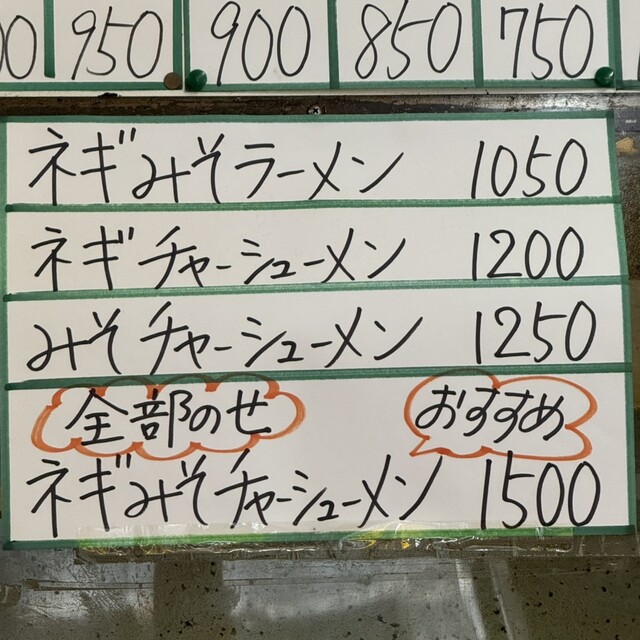 950 900 850 750
ネギみそラーメン 1050
ネギチャーシューメン 1200
みそチャーシューメン 1250
全部のせ おすすめ
ネギみそチャーシューメン 1500